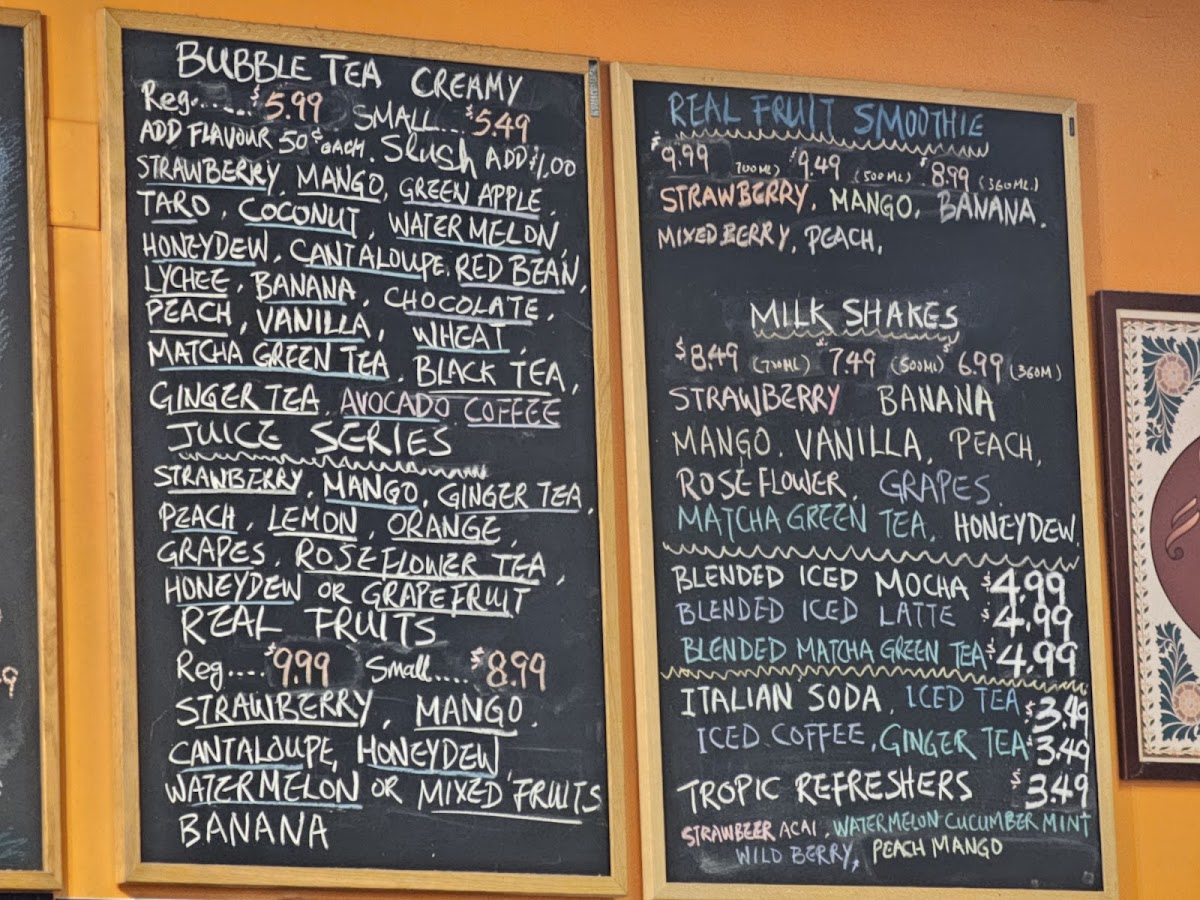 BUBBLE TEA CREAMY
Reg...... $5.99 SMALL... $5.49
ADD FLAVOUR 50¢ EACH. Slush ADD $1.00
STRAWBERRY, MANGO, GREEN APPLE,
TARO, COCONUT, WATERMELON,
HONEYDEW, CANTALOUPE, RED BEAN,
LYCHEE, BANANA, CHOCOLATE,
PEACH, VANILLA, WHEAT,
MATCHA GREEN TEA, BLACK TEA,
GINGER TEA, AVOCADO COFFEE
JUICE SERIES
STRAWBERRY, MANGO, GINGER TEA,
PEACH, LEMON, ORANGE,
GRAPES, ROSE FLOWER TEA,
HONEYDEW OR GRAPEFRUIT
REAL FRUITS
Reg.... $9.99 Small..... $8.99
STRAWBERRY, MANGO,
CANTALOUPE, HONEYDEW
WATERMELON OR MIXED FRUITS
BANANA
REAL FRUIT SMOOTHIE
$9.99 (700ML) $9.49 (500ML) $8.99 (360ML.)
STRAWBERRY, MANGO, BANANA.
MIXED BERRY, PEACH,
MILK SHAKES
$8.49 (700ML) $7.49 (500ML) $6.99 (360M)
STRAWBERRY BANANA
MANGO. VANILLA, PEACH,
ROSE FLOWER. GRAPES.
MATCHA GREEN TEA, HONEYDEW.
BLENDED ICED MOCHA $4.99
BLENDED ICED LATTE $4.99
BLENDED MATCHA GREEN TEA $4.99
ITALIAN SODA, ICED TEA $3.49
ICED COFFEE, GINGER TEA $3.49
TROPIC REFRESHERS $3.49
STRAWBEER ACAI, WATERMELON CUCUMBER MINT
WILD BERRY, PEACH MANGO